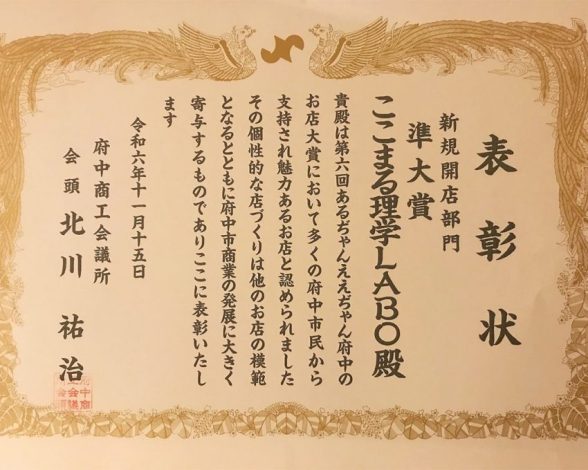 表彰状
新規開店部門
準大賞
ここまる理学LABO殿
貴殿は第六回あるぢゃんええぢゃん府中の
お店大賞において多くの府中市民から
支持され魅力あるお店と認められました
その個性的な店づくりは他のお店の模範
となるとともに府中市商業の発展に大きく
寄与するものでありここに表彰いたし
ます
令和六年十一月十五日
府中商工会議所
会頭 北川祐治